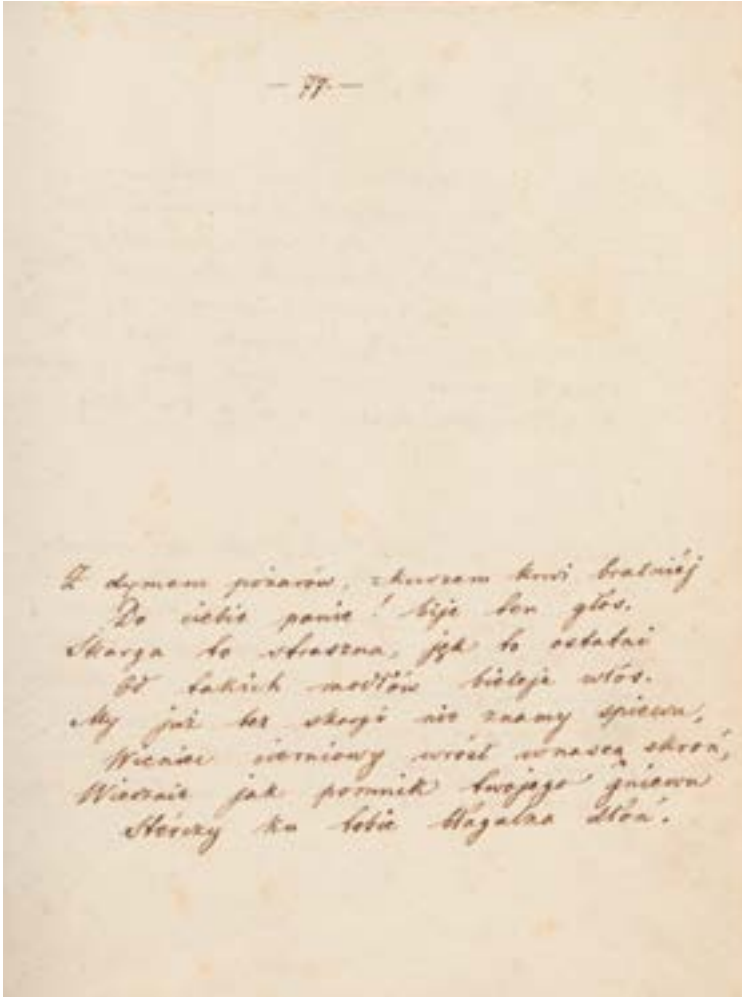 — 77. —
Z dymem pożarów, z kurzem krwi bratniéj
Do ciebie panie! bije ten głos.
Skarga to straszna, jęk to ostatni
Od takich modłów bieleje włos.
My już bez skargi nie znamy śpiewu,
Wieniec cierniowy wrósł w naszą skroń,
Wiecznie jak pomnik twojego gniewu
Sterczy ku tobie błagalna dłoń.